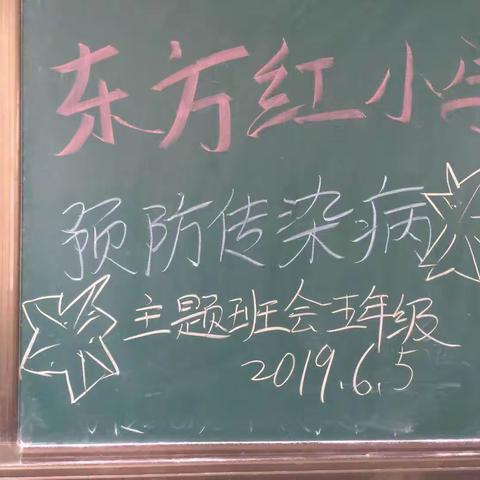 东方红小学
预防传染病
主题班会五年级
2019.6.5